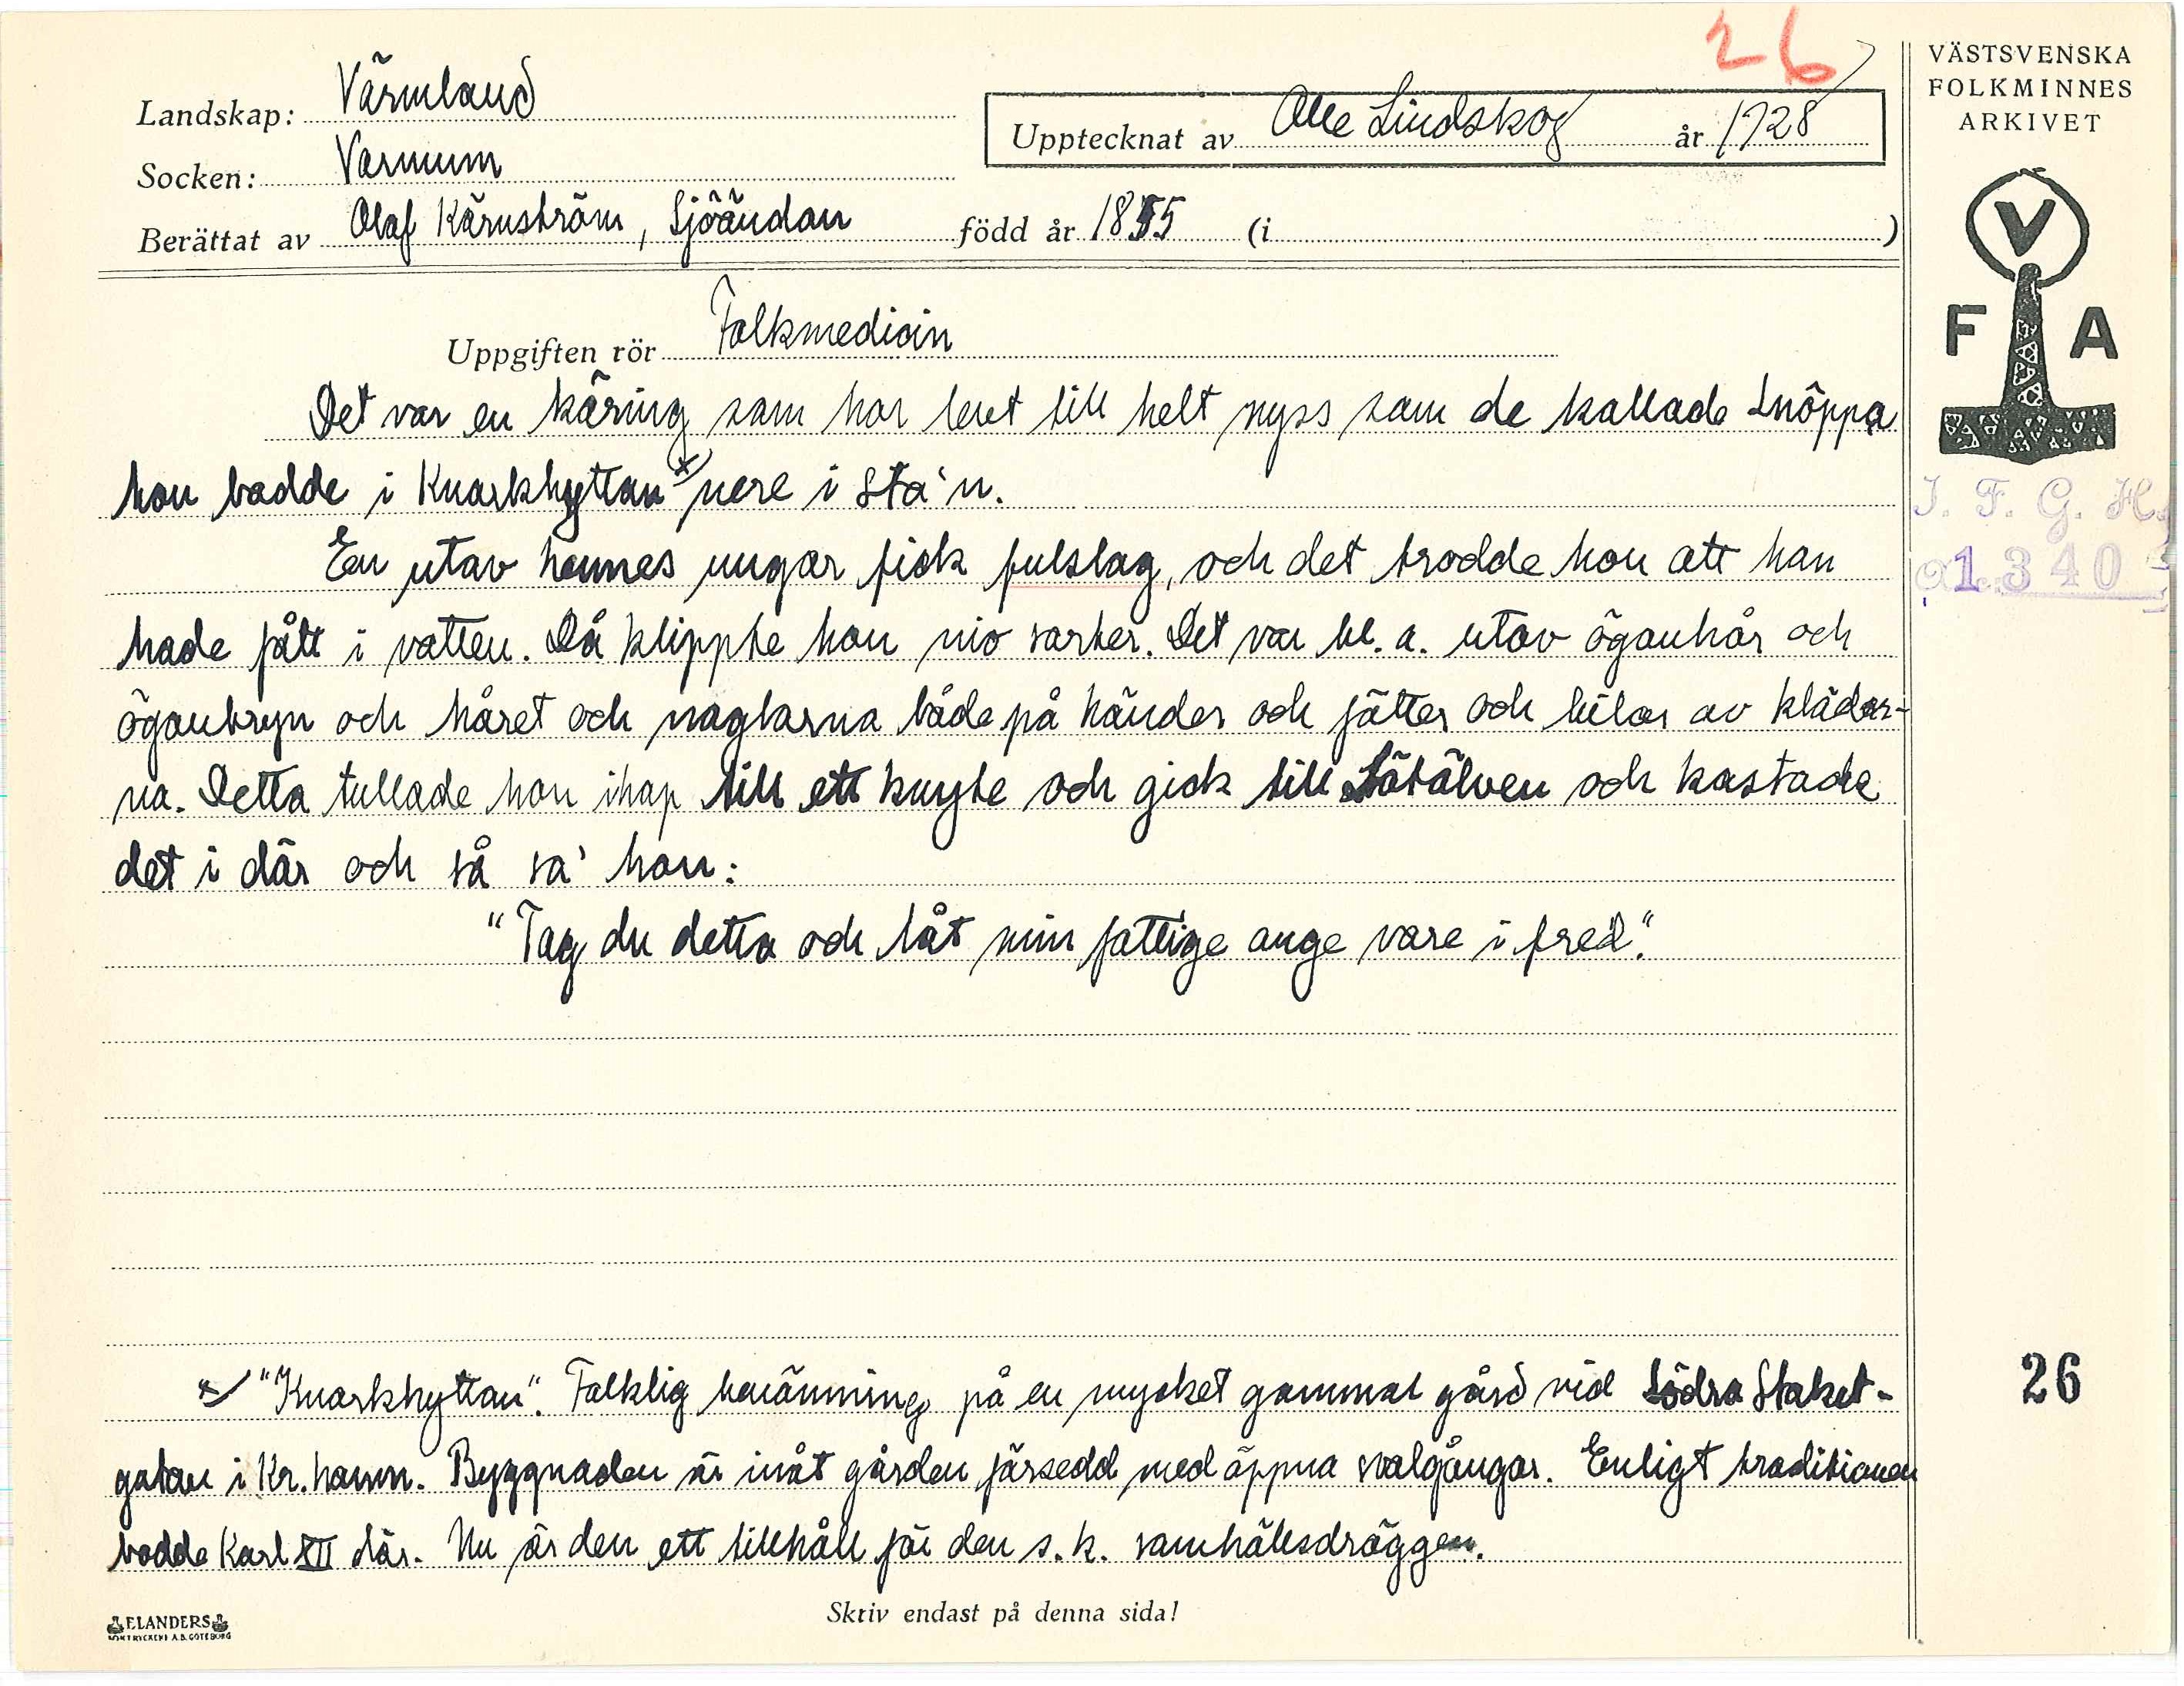 26
Landskap: Värmland
Upptecknat av Olle Lindskog år 1928
VÄSTSVENSKA
FOLKMINNES
ARKIVET
Socken: Varnum
Berättat av Olof Kärnström, Sjöändan född år 1855 (i )
V
F A
Uppgiften rör Folkmedicin
Det var en käring som har levt till helt nyss som de kallade Snöppa
hon bodde i Knarkhyttan x) nere i sta'n.
I. F. G. H.
En utav hennes ungar fick fulslag, och det trodde hon att han
1340
hade fått i vatten. Då klippte hon nio sorter. Det var bl. a. utav öganhår och
öganbryn och håret och naglarna både på händer och fötter och bitar av kläder-
na. Detta tullade hon ihop till ett knyte och gick till Lötälven och kastade
det i där och så sa' hon:
"Tag du detta och låt min fattige ange vare i fred".
26
x/ "Knarkhyttan". Folklig benämning på en mycket gammal gård vid Södra Staket-
gatan i Kr. hamn. Byggnaden är inåt gården försedd med öppna svalgångar. Enligt traditionen
bodde Karl XII där. Nu är den ett tillhåll för den s. k. samhällsdräggen.
Skriv endast på denna sida!
ELANDERS
BOKTRYCKERI A.B. GÖTEBORG